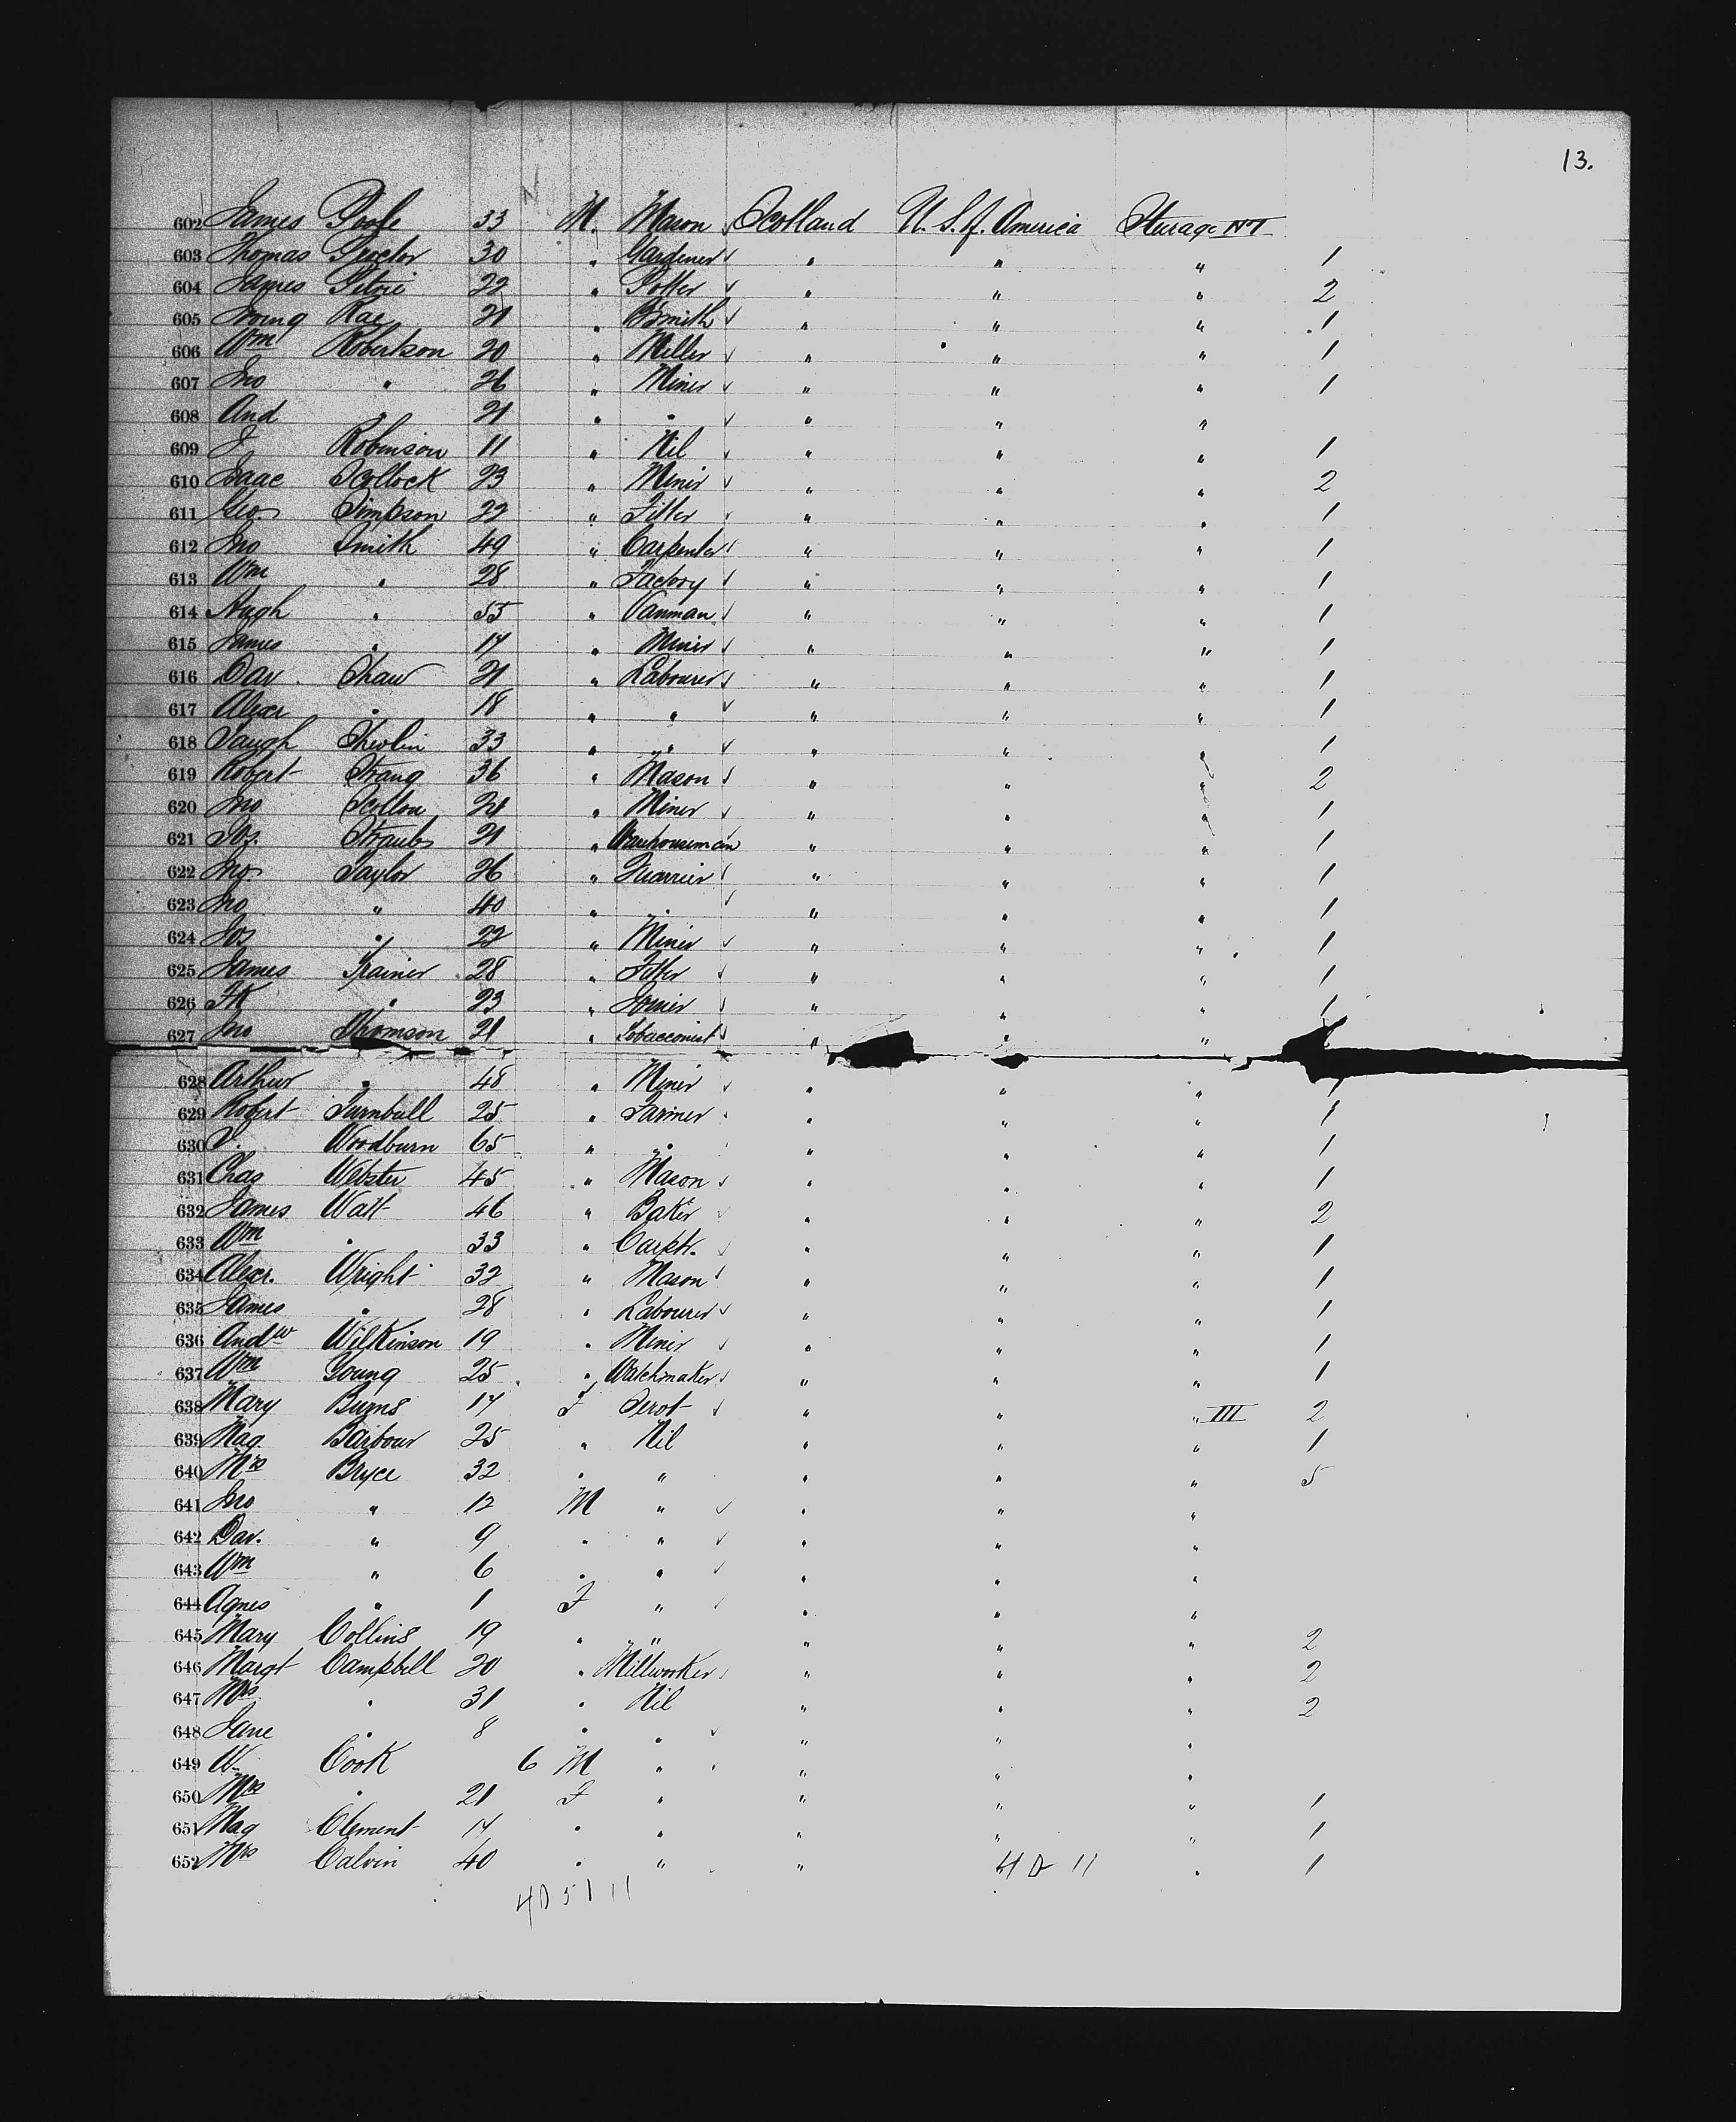 13.
602 James Poole 33 M. Mason Scotland U. S. of America Sturage
603 Thomas Proctor 30 " Gardener " " " 1
604 James Petrie 22 " Potter " " " 2
605 Rae 21 " BSmith " " " 1
606 Wm Robertson 20 " Miller " " " 1
607 Jno " 26 " Miner " " " 1
608 And " 21 " " " " "
609 J Robinson 11 " Nil " " " 1
610 Isaac Scollock 23 " Miner " " " 2
611 Geo. Simpson 22 " Fitter " " " 1
612 Jno Smith 49 " Carpenter " " " 1
613 Wm " 28 " Factory " " " 1
614 Hugh " 55 " Vanman " " " 1
615 James " 17 " Miner " " " 1
616 Dav. Shaw 21 " Labourer " " " 1
617 Alexr " 18 " " " " " 1
618 33 " " " " " 1
619 Robert Strang 36 " Mason " " " 2
620 Jno 21 " Miner " " " 1
621 Jos. 21 " Warehouseman " " " 1
622 Jno. Taylor 26 " Quarrier " " " 1
623 Jno " 40 " " " " " 1
624 Jos " 22 " Miner " " " 1
625 James Trainer 28 " Fitter " " " 1
626 Fk " 23 " Joiner " " " 1
627 Jno Thomson 21 " Tobacconist " " "
628 Arthur " 48 " Miner " " " 1
629 Robert Turnbull 25 " Farmer " " " 1
630 Woodburn 65 " " " " " 1
631 Chas Webster 45 " Mason " " " 1
632 James Watt 46 " Baker " " " 2
633 Wm " 33 " Carptr. " " " 1
634 Alexr. Wright 32 " Mason " " " 1
635 James " 28 " Labourer " " " 1
636 Andw Wilkinson 19 " Miner " " " 1
637 Wm Young 25 " Watchmaker " " " 1
638 Mary Burns 17 F Servt " " " III 2
639 Mag Barbour 25 " Nil " " " 1
640 Mrs Bryce 32 " " " " " 5
641 Jno " 12 M " " " "
642 Dav. " 9 " " " " "
643 Wm " 6 " " " " "
644 Agnes " 1 F " " " "
645 Mary Collins 19 " " " " " 2
646 Margt Campbell 20 " Millworker " " " 2
647 Mrs " 31 " Nil " " " 2
648 Jane " 8 " " " " "
649 W Cook 6 M " " " "
650 Mrs " 21 F " " " " 1
651 Mag Clement 17 " " " " " 1
652 Mrs Calvin 40 " " " 4 D 11 " 1
4 D 51 11